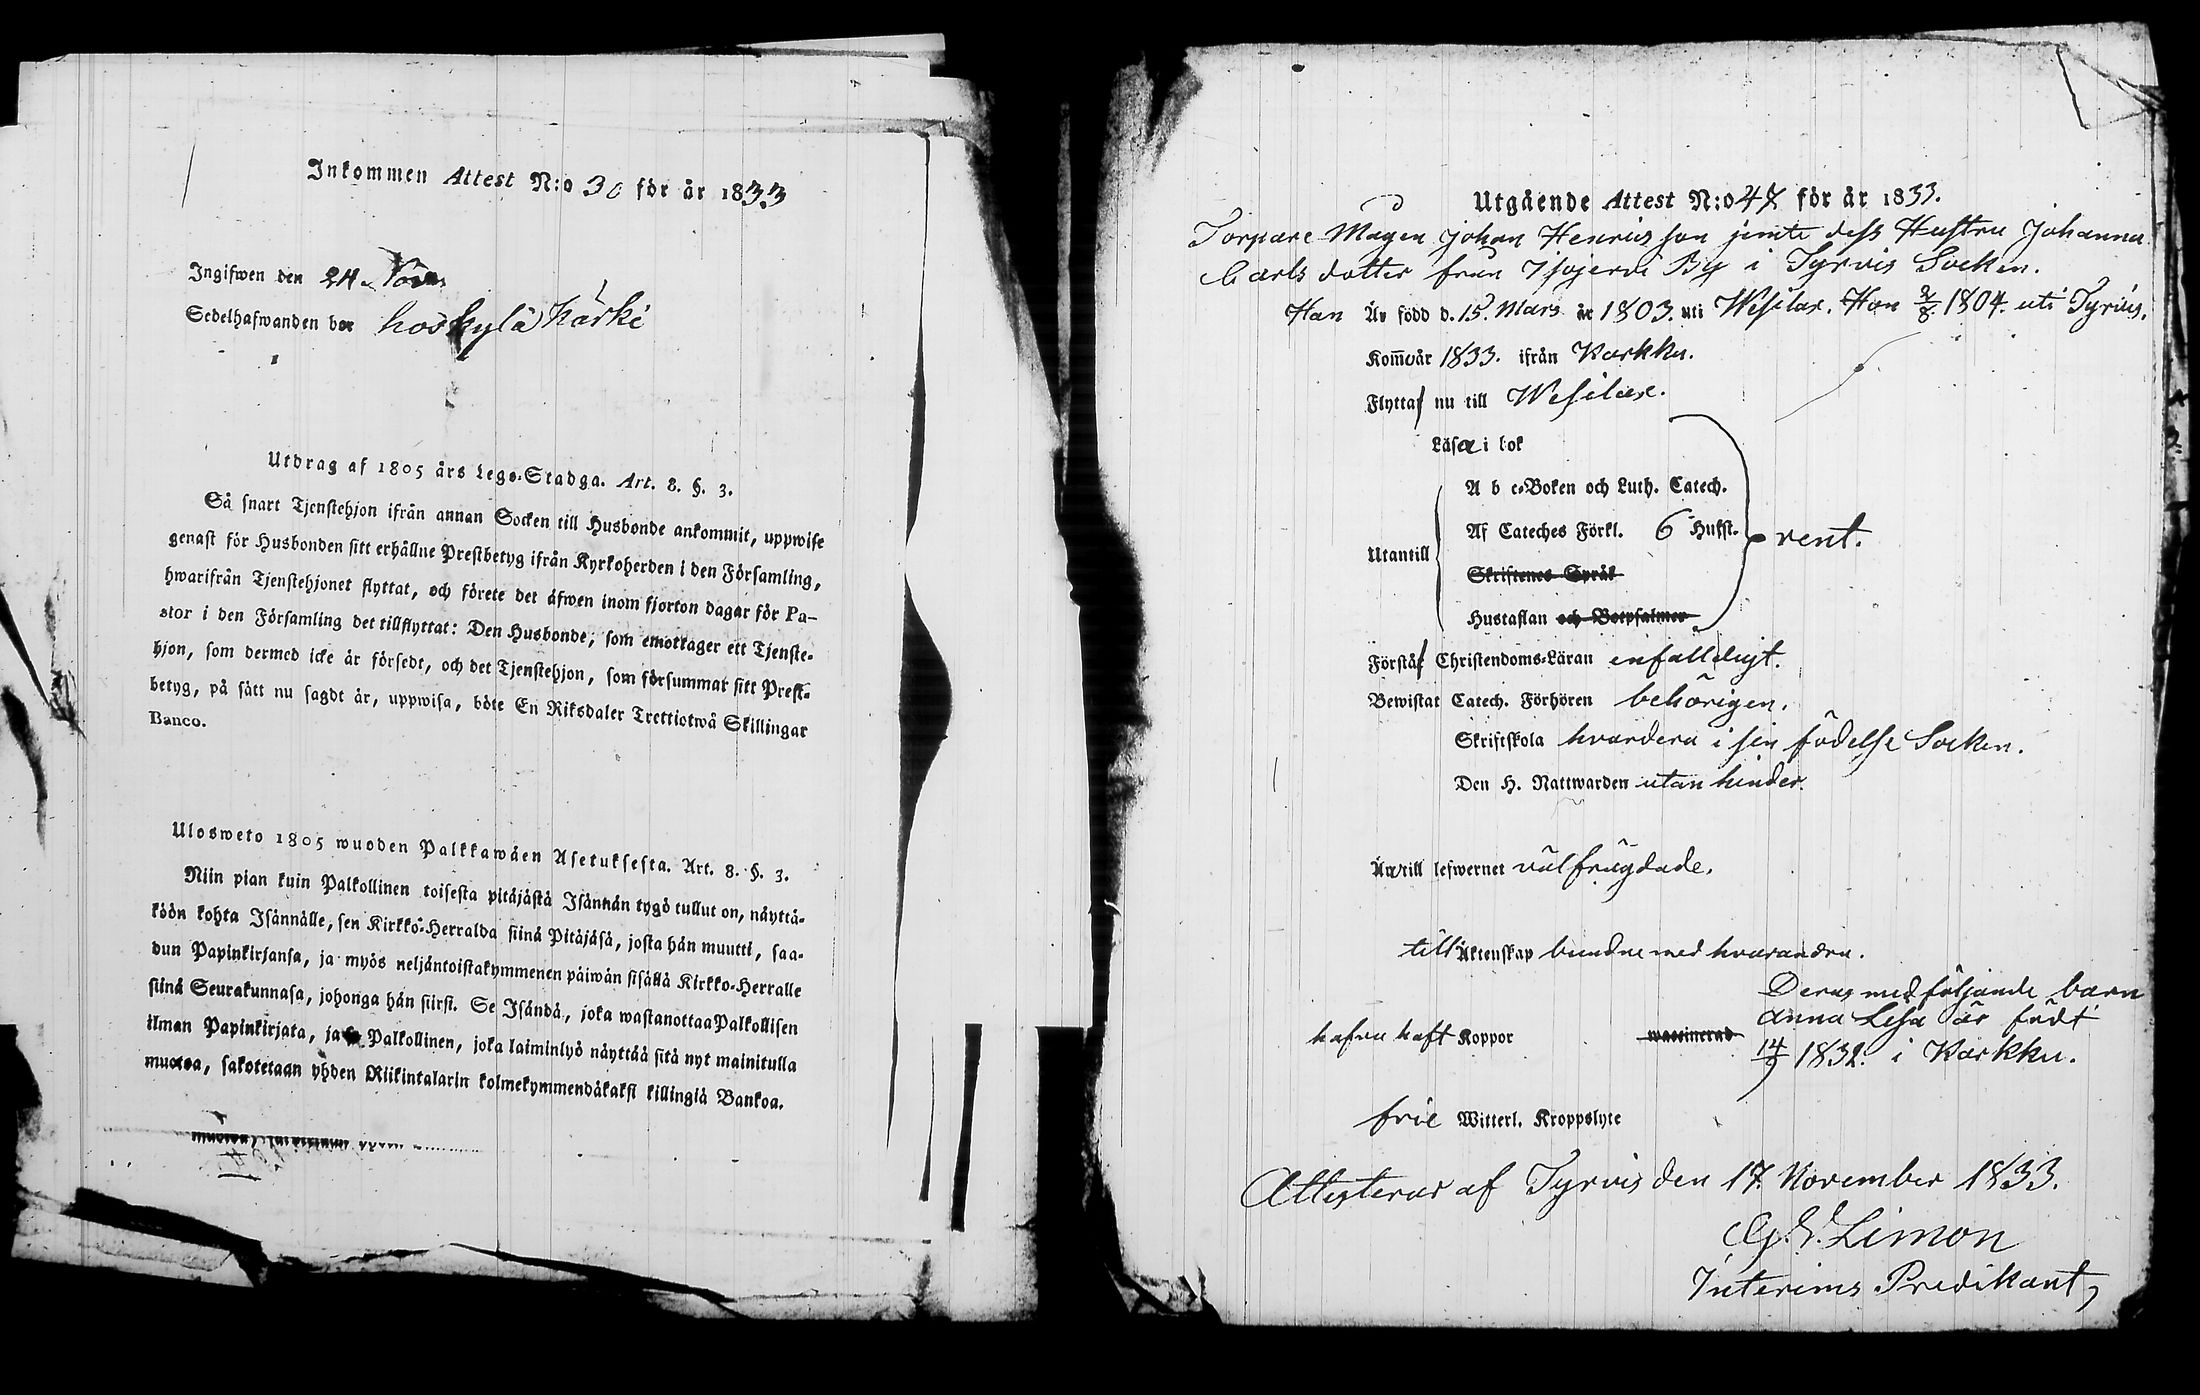 Inkommen Attest N:o 30 för år 1833
Ingifwen den 24 Nov
Sedelhafwanden bor hoskylä Kärki
Utdrag af 1805 års Lego-Stadga. Art. 8. §. 3.
Så snart Tjenstehjon ifrån annan Socken till Husbonde ankommit, uppwise
genast för Husbonden sitt erhållne Prestbetyg ifrån Kyrkoherden i den Församling,
hwarifrån Tjenstehjonet flyttat, och förete det äfwen inom fjorton dagar för Pa-
stor i den Församling det tillflyttat: Den Husbonde, som emottager ett Tjenste-
hjon, som dermed icke är försedt, och det Tjenstehjon, som försummar sitt Prest-
betyg, på sätt nu sagdt är, uppwisa, böte En Riksdaler Trettiotwå Skillingar
Banco.
Ulosweto 1805 wuoden Palkkawäen Asetuksesta. Art. 8. §. 3.
Niin pian kuin Palkollinen toisesta pitäjästä Isännän tygö tullut on, näyttä-
köön kohta Isännälle, sen Kirkko-Herralda siinä Pitäjäsä, josta hän muutti, saa-
dun Papinkirjansa, ja myös neljäntoistakymmenen päiwän sisällä Kirkko-Herralle
siinä Seurakunnasa, johonga hän siirsi. Se Isändä, joka wastanottaa Palkollisen
ilman Papinkirjata, ja se Palkollinen, joka laiminlyö näyttää sitä nyt mainitulla
muotoa, sakotetaan yhden Riikintalarin kolmekymmendäkaksi killingiä Bankoa.
Utgående Attest N:o 47 för år 1833.
Torpare Mågen Johan Henricsson jemte dess Hustru Johanna
Carls dotter från Isojervi By i Tyrvis Socken.
Han Är född d. 15. Mars år 1803. uti Wesilax. Hon 2/8 1804. uti Tyrvis.
Kom år 1833. ifrån Karkku.
Flytta nu till Wesilax.
Läsa i bok
A b c-Boken och Luth. Catech.
Af Cateches Förkl. 6 Hufst.
rent.
Utantill
Skriftenes Språk
Hustaflan och Botpsalmer
Förstå Christendoms-Läran enfalldigt.
Bewistat Catech. Förhören behörigen.
Skriftskola hvardera i sin födelse Socken.
Den H. Nattwarden utan hinder.
Äro till lefwernet välfrägdade.
till Äktenskap bundne med hvarandra.
Deras medföljande barn
Anna Lisa är född
14/9 1832. i Karkku.
hafva haft Koppor waccinerad
frie Witterl. Kroppslyte
Attesterar af Tyrvis den 17. November 1833.
G. E. Limon
Interims Predikant,